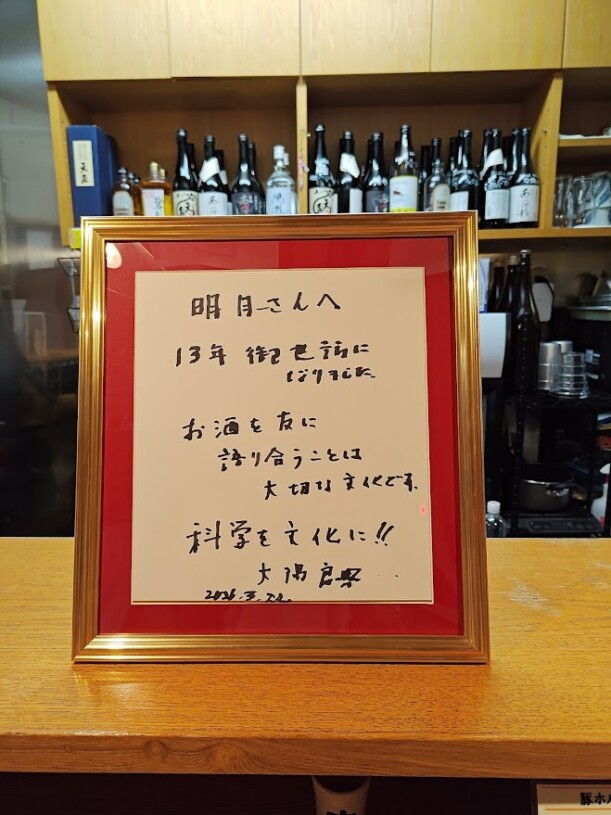 明月さんへ
13年御世話に
なりました
お酒を友に
語り合うことは
大切な文化です。
科学を文化に!!
大隅良典
2026.3.22.
豚ホル